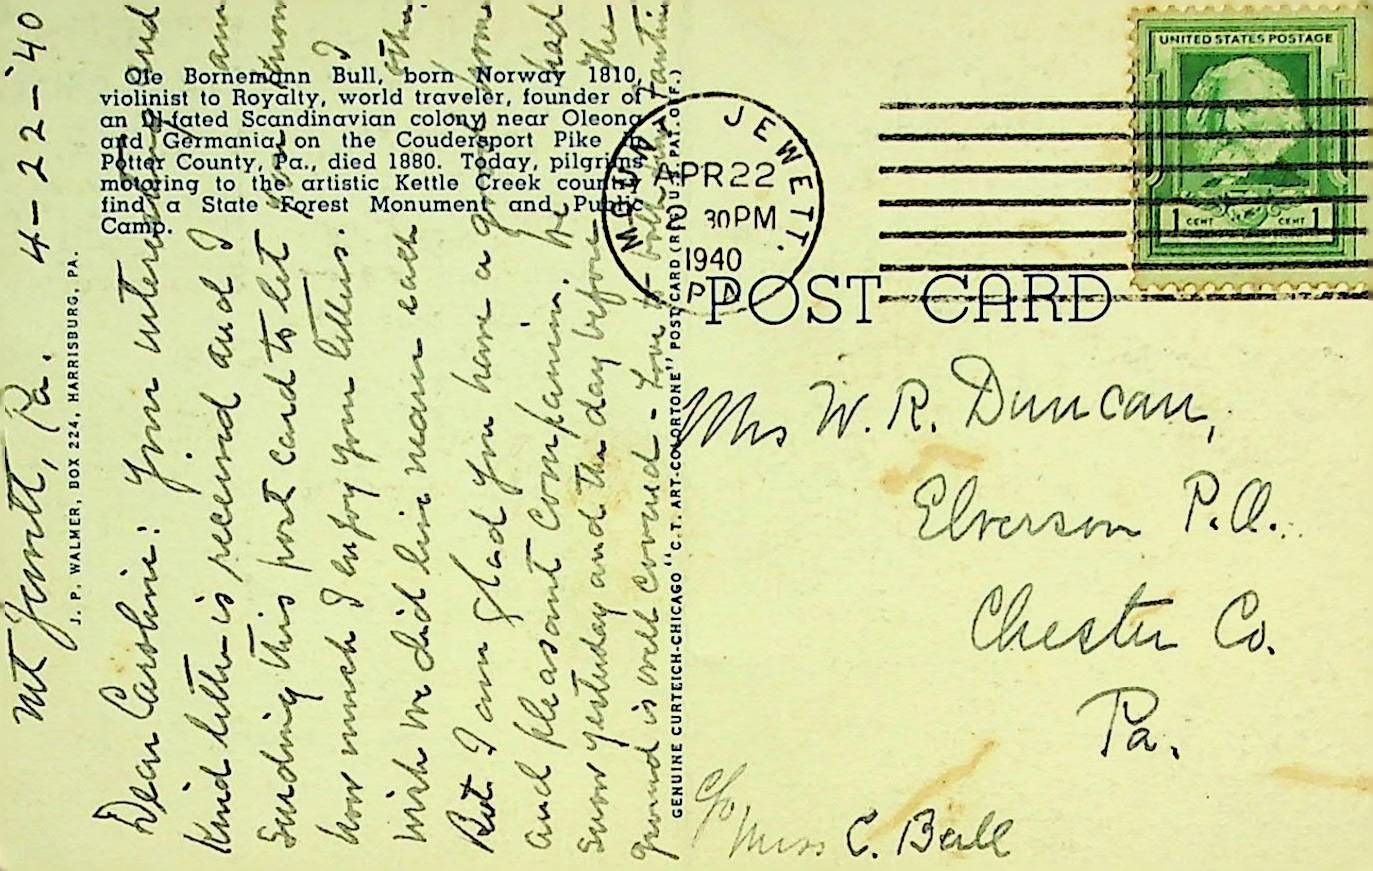 Ole Bornemann Bull, born Norway 1810,
violinist to Royalty, world traveler, founder of
an Ill-fated Scandinavian colony near Oleona
and Germania on the Coudersport Pike in
Potter County, Pa., died 1880. Today, pilgrims
motoring to the artistic Kettle Creek country
find a State Forest Monument and Public
Camp.
J. P. WALMER, BOX 224, HARRISBURG, PA.
Mt Jewett, Pa. 4-22-'40
Dear Caroline: Your interesting and
kind letter is received and I am
sending this post card to let you know
how much I enjoy your letters. I
wish we did live near each other
But I am glad you have a good home
and pleasant companion. We had
snow yesterday and the day before the
ground is well covered - Love to both from Fantin
GENUINE CURTEICH-CHICAGO "C.T. ART-COLORTONE" POST CARD (REG. U.S. PAT. OFF.)
MOUNT JEWETT.
APR 22
30 PM
1940
PA
UNITED STATES POSTAGE
1 CENT CENT 1
POST CARD
Mrs W. R. Duncan,
Elverson P.O.
Chester Co.
Pa.
c/o Miss C. Beall